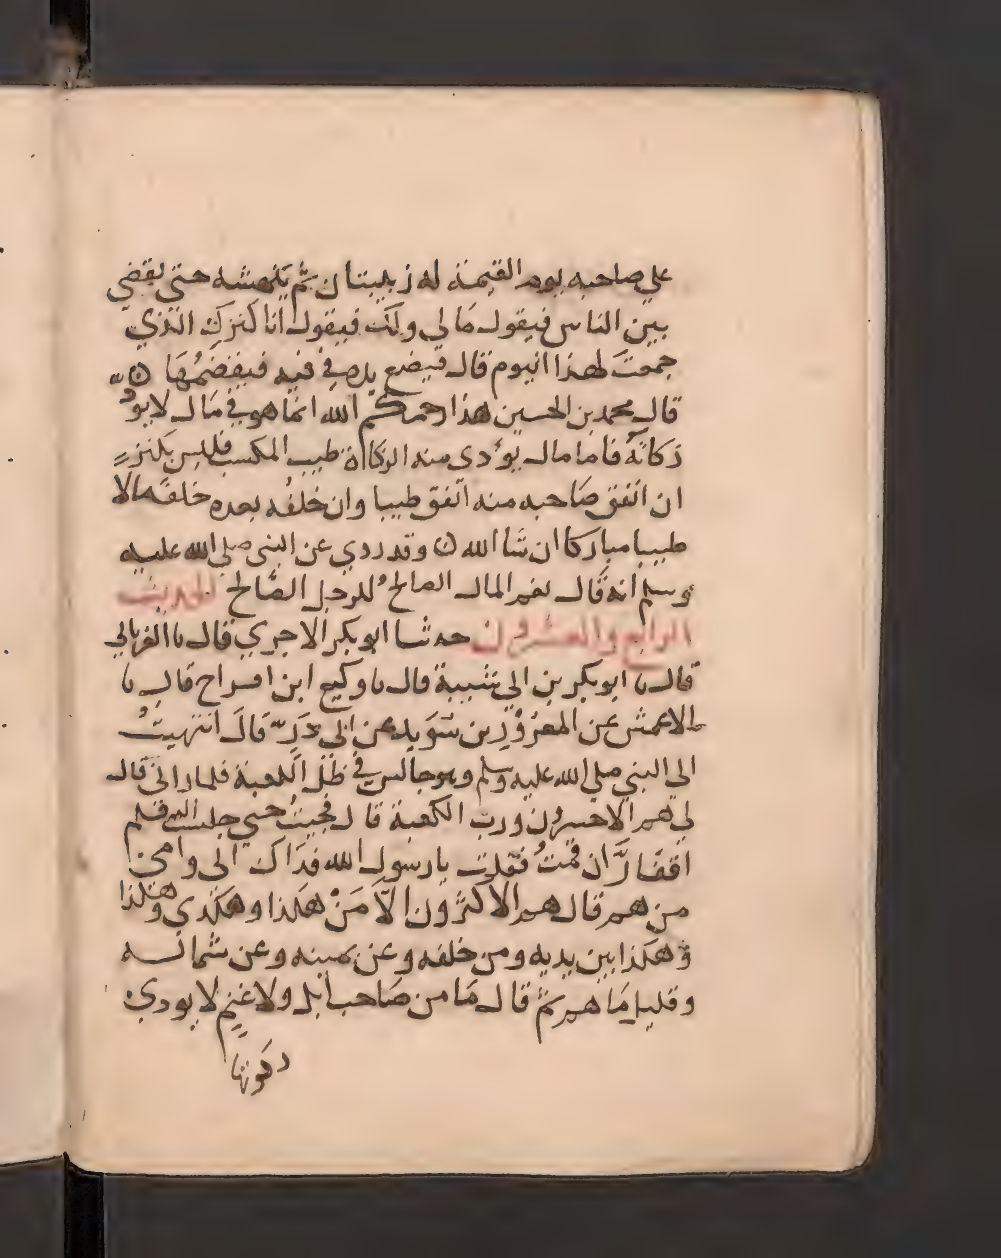 على صاحبه يوم القيمة له زبيبتان ثم ينهشه حتى يقضي
بين الناس فيقول مالي ولك فيقول انا كنزك الذي
جمعت لهذا اليوم قال فيضع يده في فيه فيقضمها
قال محمد بن الحسين هذا رحمكم الله انما هو في مال لا يود
زكاته فاما مال يؤدى منه الزكاة طيب المكسب فليس بكنز
ان انفق صاحبه منه انفق طيبا وان خلفه بعده خلفه مالا
طيبا مباركا ان شا الله وقد روي عن النبي صلى الله عليه
وسلم انه قال نعم المال الصالح للرجل الصالح الحديث
الرابع والعشرون حدثنا ابو بكر الاجري قال نا الفريابي
قال نا ابو بكر بن ابي شيبة قال نا وكيع ابن الجراح قال نا
الاعمش عن المعرور بن سويد عن ابي ذر قال انتهيت
الى النبي صلى الله عليه وسلم وهو جالس في ظل الكعبة فلما راني قال
لي هم الاخسرون ورب الكعبة قال فجيت حتى جلست فلم
اتقار ان قمت فقلت يا رسول الله فداك ابي وامي
من هم قال هم الاكثرون الا من هكذا وهكذى وهكذا
وهكذا بين يديه ومن خلفه وعن يمينه وعن شماله
وقليل ما هم ثم قال ما من صاحب ابل ولا غنم لا يودي
زكوتها